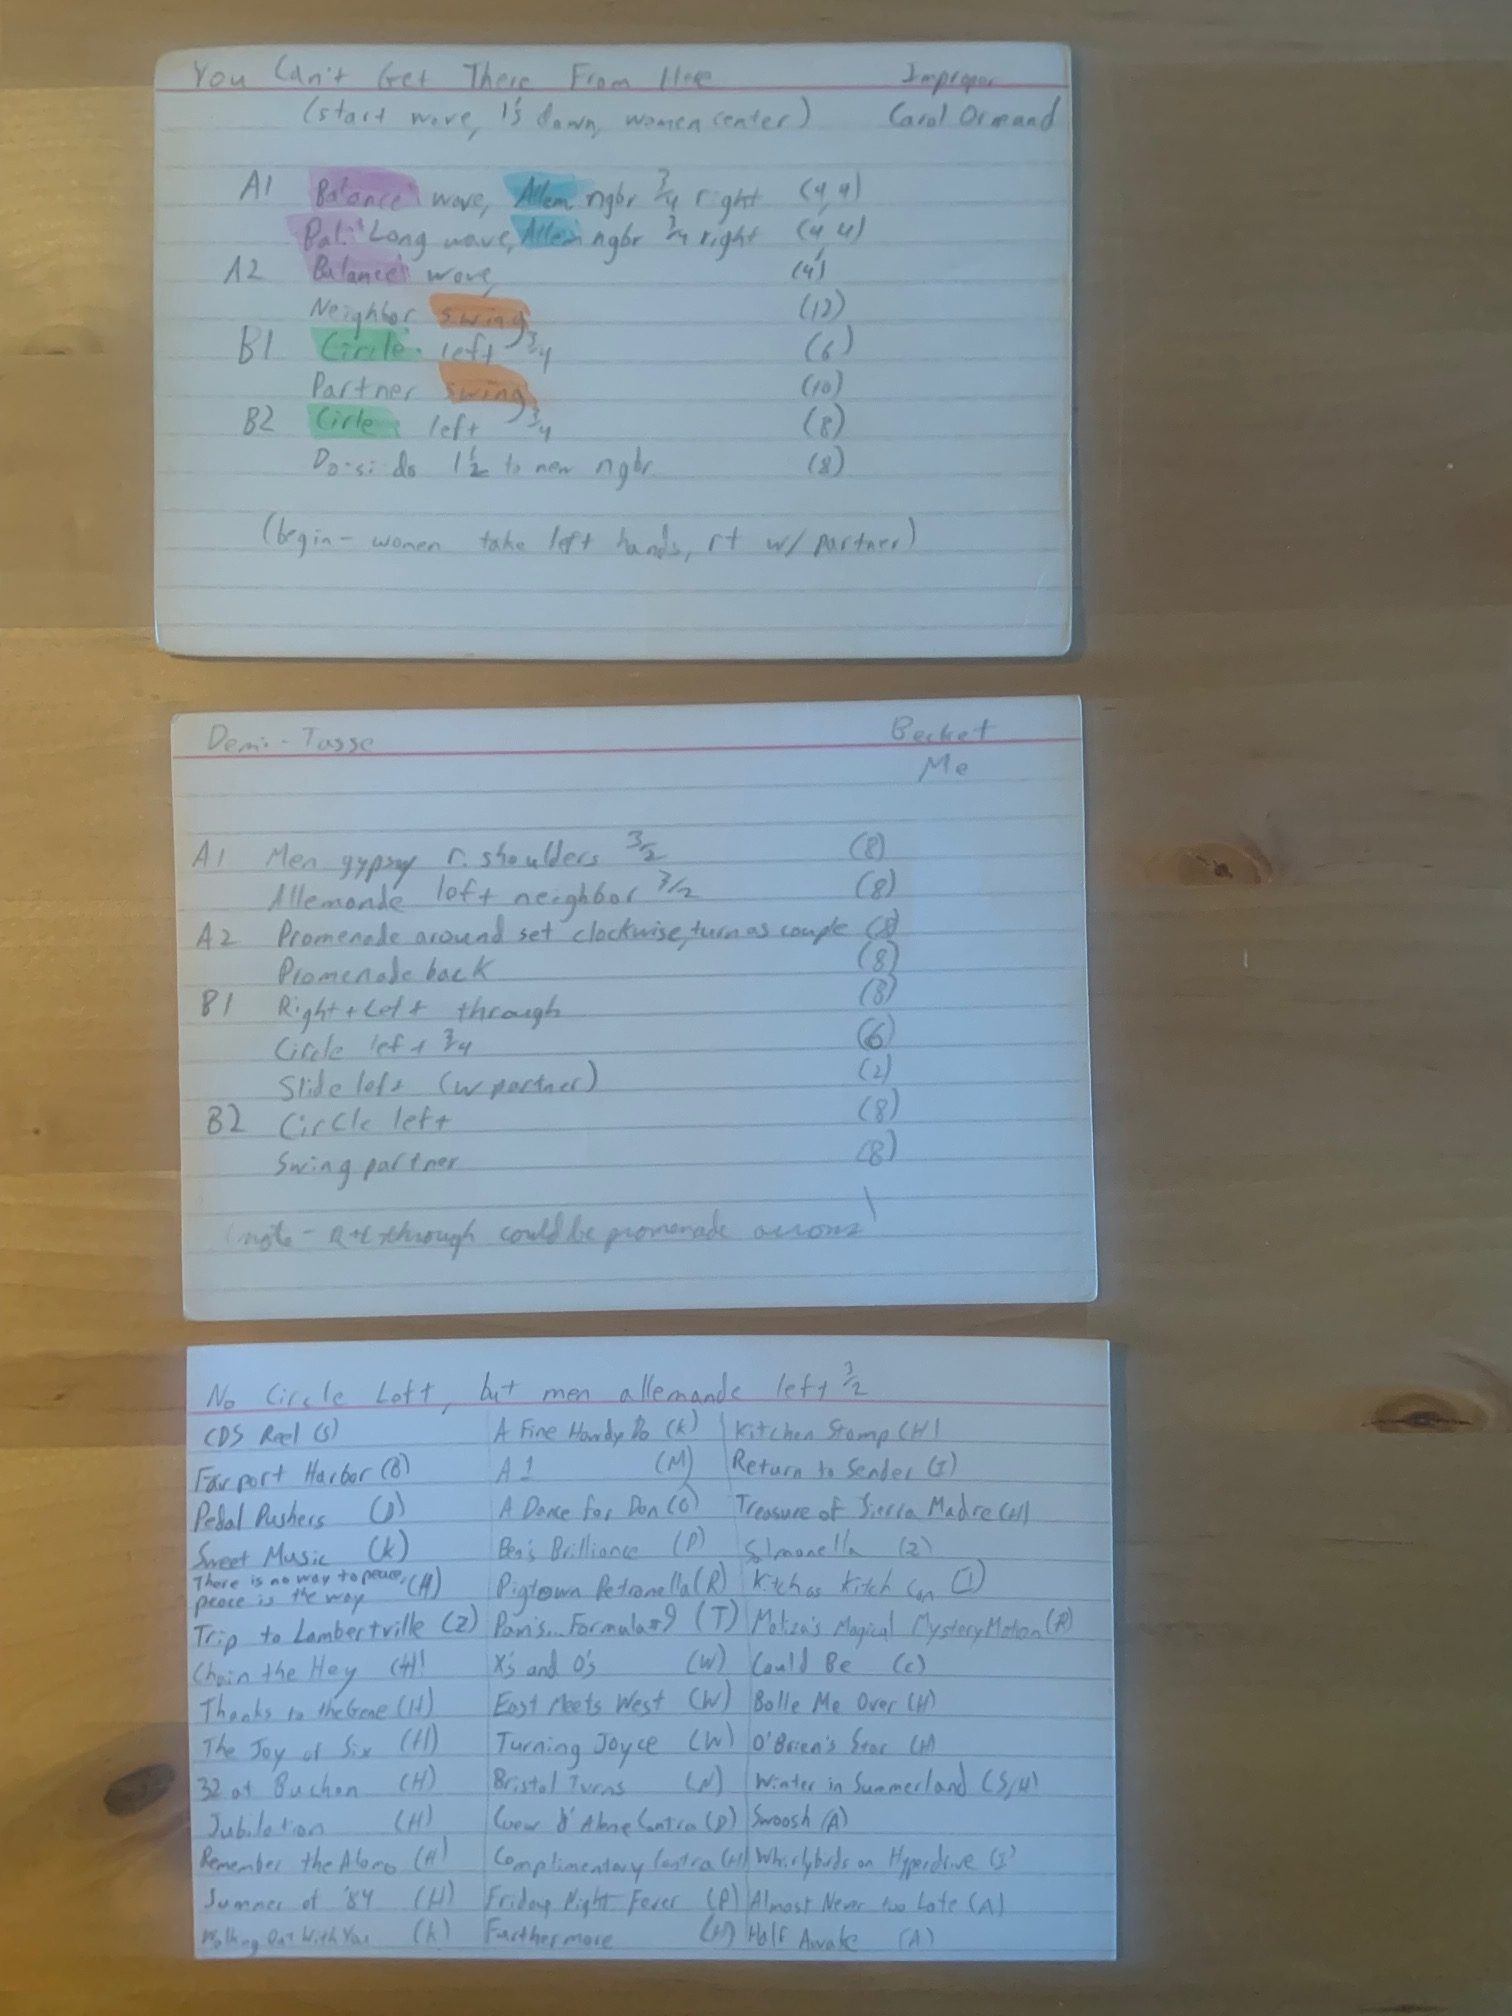 You Can't Get There From Here Improper
(start wave, 1's down, women center) Carol Ormand
A1 Balance wave, Allem ngbr 3/4 right (4,4)
Bal. Long wave, Allem ngbr 3/4 right (4,4)
A2 Balance wave, (4)
Neighbor swing (12)
B1 Circle left 3/4 (6)
Partner swing (10)
B2 Cirle left 3/4 (8)
Do-si-do 1 1/2 to new ngbr (8)
(begin - women take left hands, rt w/ partner)
Demi-Tasse Becket
Me
A1 Men gypsy r. shoulders 3/2 (8)
Allemande left neighbor 3/2 (8)
A2 Promenade around set clockwise, turn as couple (8)
Promenade back (8)
B1 Right + Left through (8)
Circle left 3/4 (6)
Slide left (w partner) (2)
B2 Circle left (8)
Swing partner (8)
(note - R+L through could be promenade across)
No Circle Left, but men allemande left 3/2
CDS Reel (S) A Fine Howdy Do (K) Kitchen Stomp (H)
Fairport Harbor (B) A1 (M) Return to Sender (I)
Pedal Pushers (D) A Dance for Don (O) Treasure of Sierra Madre (H)
Sweet Music (K) Ben's Brilliance (P) Slmonella (Z)
There is no way to peace, peace is the way (H) Pigtown Petronella (R) Kitch as Kitch Can (I)
Trip to Lambertville (Z) Pam's... Formula #9 (T) Magical Mystery Motion (R)
Chain the Hey (H) X's and O's (W) Could Be (C)
Thanks to the Gene (H) East Meets West (W) Bolle Me Over (H)
The Joy of Six (H) Turning Joyce (W) O'Brien's Star (H)
32 at Buchan (H) Bristol Turns (N) Winter in Summerland (S,H)
Jubilation (H) Coeur d'Alene Contra (D) Swoosh (A)
Remember the Alamo (H) Complimentary Contra (H) Whirlybirds on Hyperdrive (I)
Summer of '84 (H) Friday Night Fever (P) Almost Never too Late (A)
Walking Out With You (K) Furthermore (H) Half Awake (A)